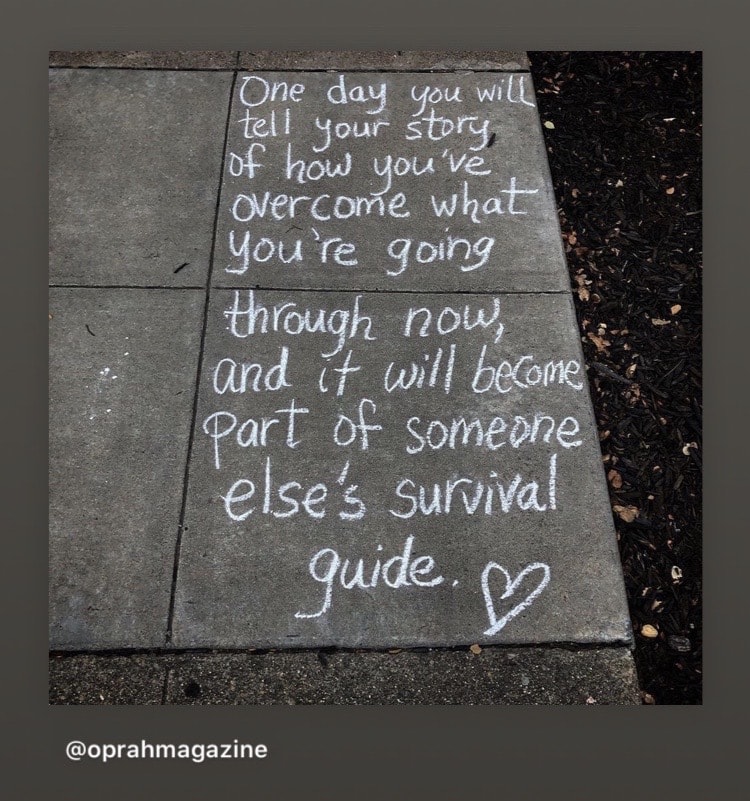 One day you will
tell your story
of how you've
overcome what
you're going
through now,
and it will become
part of someone
else's survival
guide.
@oprahmagazine